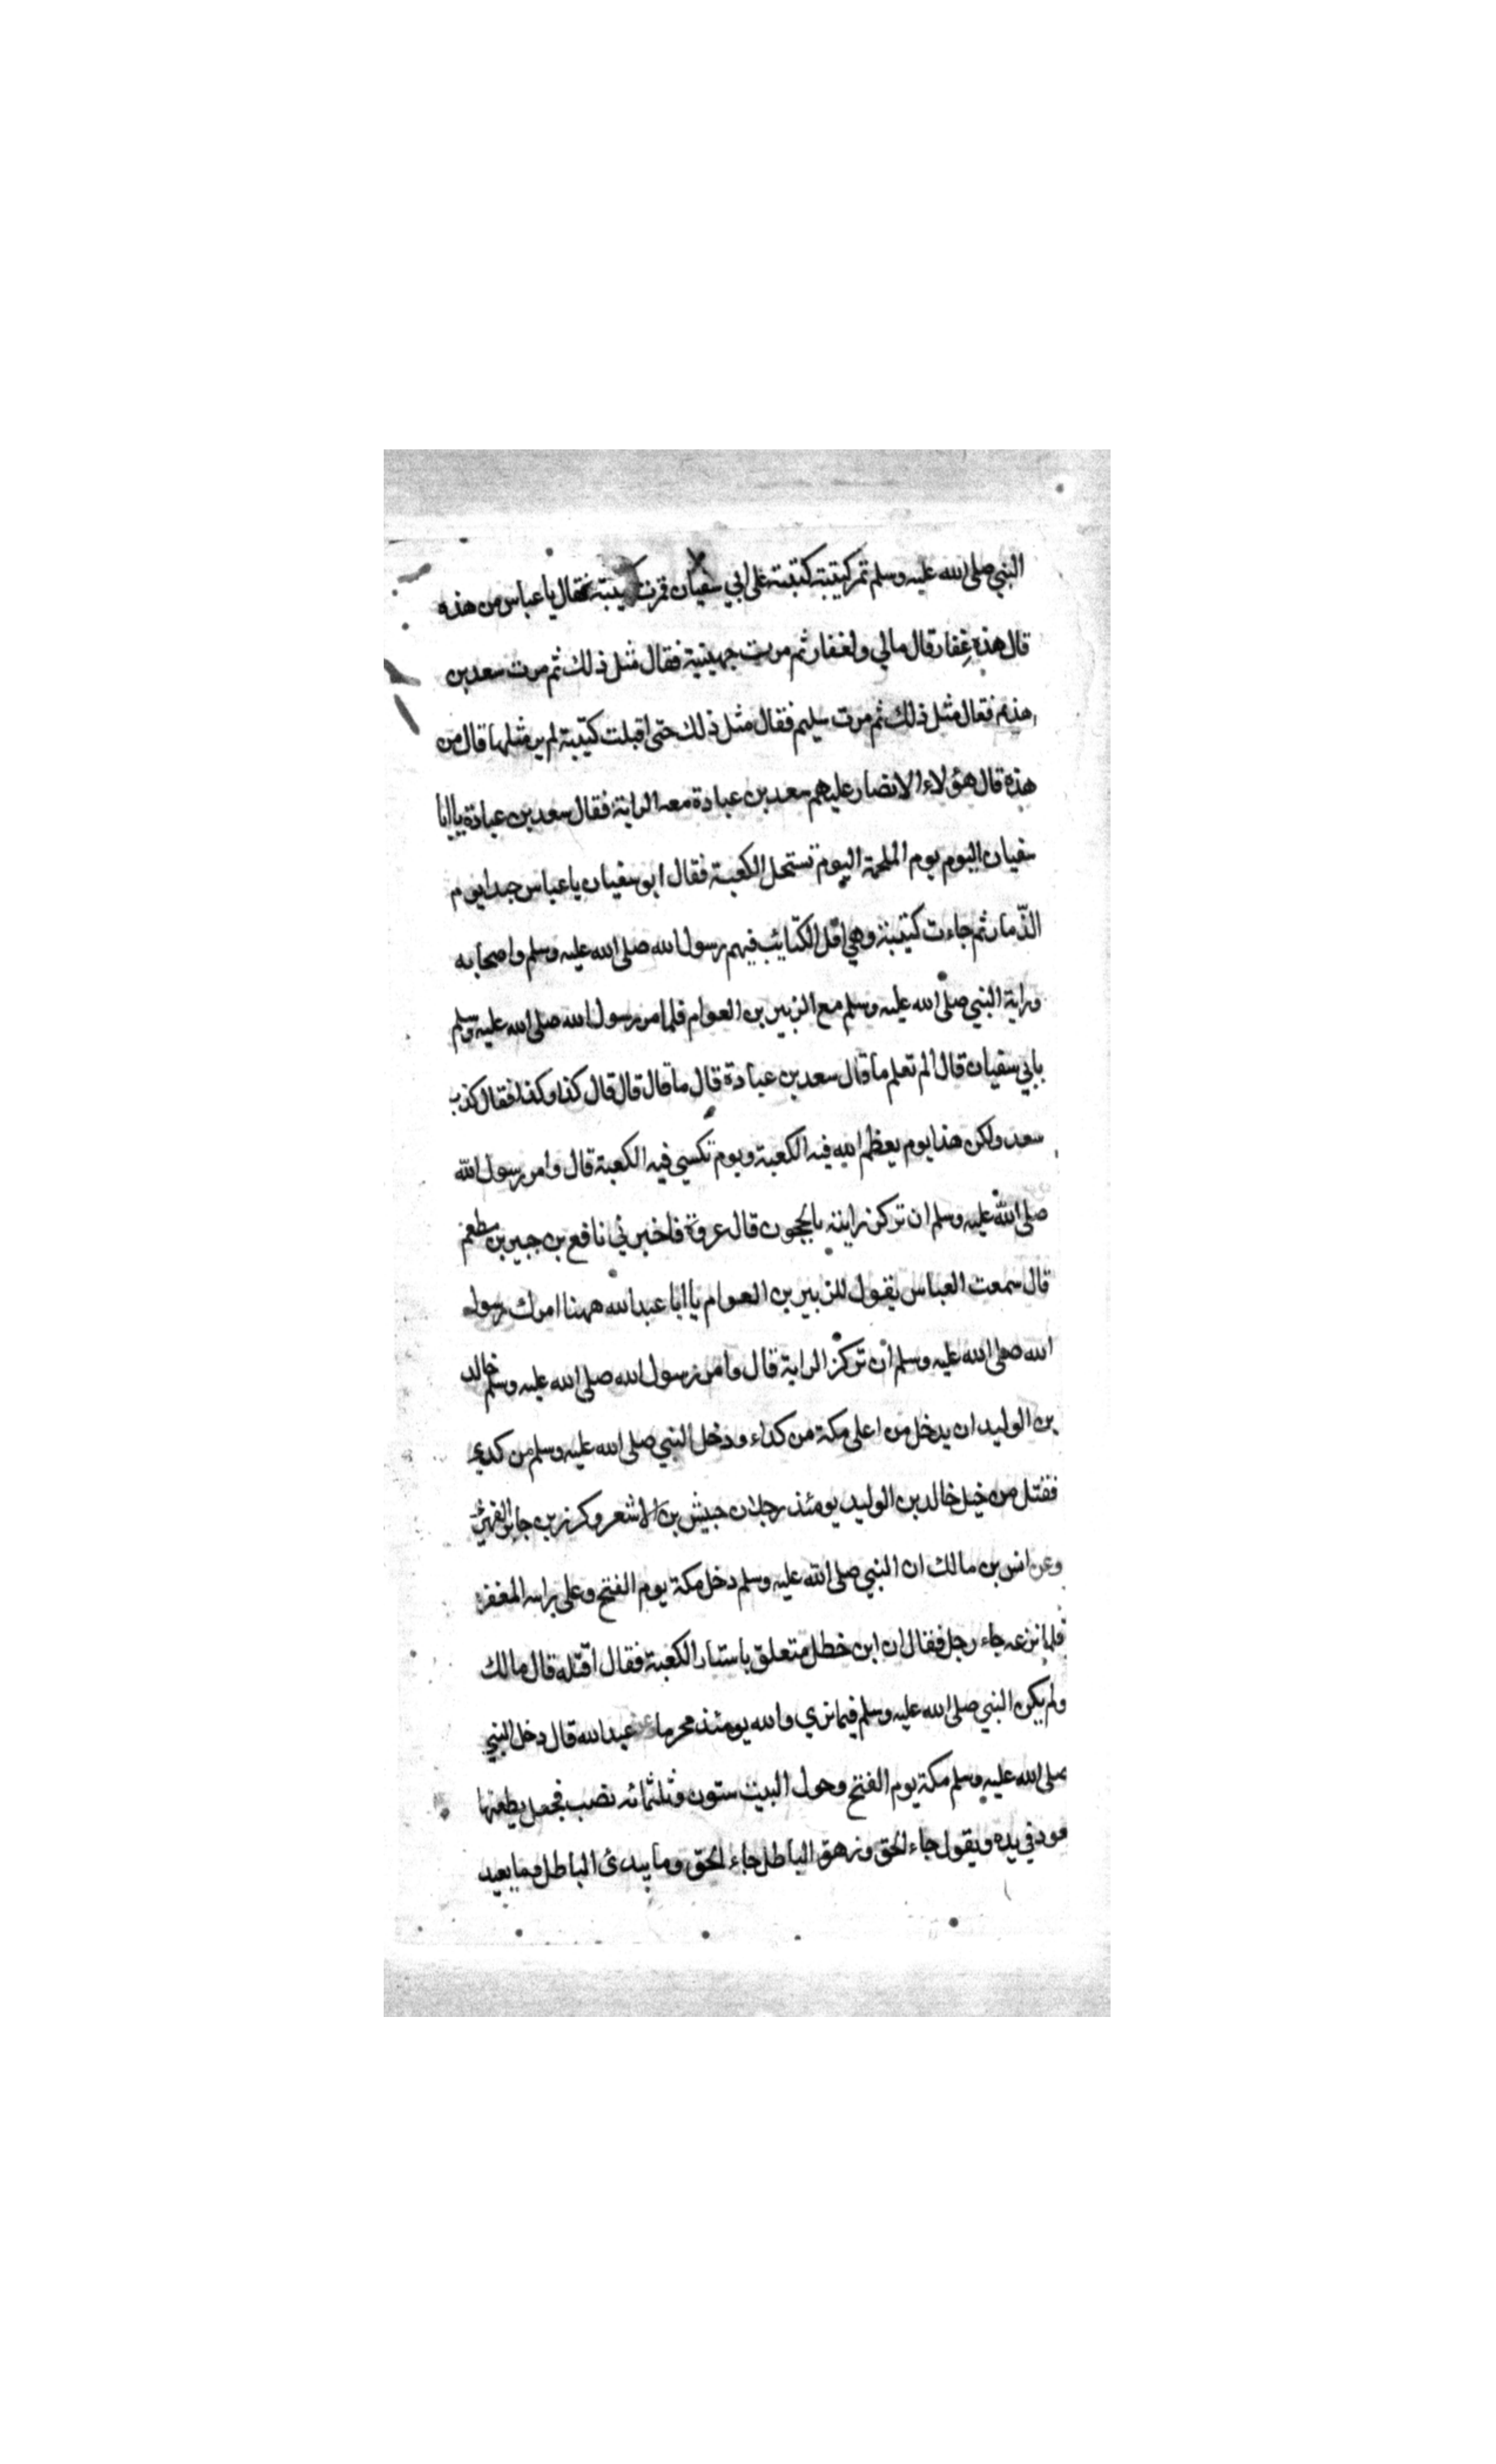 النبي صلى الله عليه وسلم تمر كتيبة كتيبة على ابي سفيان فمرت كتيبة فقال يا عباس من هذه
قال هذه غِفار قال مالي ولغفار ثم مرت جهينية فقال مثل ذلك ثم مرت سعد بن
هذيم فقال مثل ذلك ثم مرت سليم فقال مثل ذلك حتى اقبلت كتيبة لم ير مثلها قال من
هذه قال هؤلاء الانصار عليهم سعد بن عبادة معه الراية فقال سعد بن عبادة يا ابا
سفيان اليوم يوم الملحمة اليوم تستحل الكعبة فقال ابو سفيان يا عباس حبدا يوم
الذّمار ثم جاءت كتيبة وهي اقل الكتايب فيهم رسول الله صلى الله عليه وسلم واصحابه
وراية النبي صلى الله عليه وسلم مع الزبير بن العوام فلما مر رسول الله صلى الله عليه وسلم
بابي سفيان قال الم تعلم ما قال سعد بن عبادة قال ما قال قال قال كذا وكذا فقال كذب
سعد ولكن هذا يوم يعظم الله فيه الكعبة ويوم تكسى فيه الكعبة قال وامر رسول الله
صلى الله عليه وسلم ان تركز رايته بالحجون قال عروة فاخبرني نافع بن جبير بن مطعم
قال سمعت العباس يقول للزبير بن العوام يا ابا عبد الله ههنا امرك رسول
الله صلى الله عليه وسلم ان تركز الراية قال وامر رسول الله صلى الله عليه وسلم خالد
بن الوليد ان يدخل من اعلى مكة من كداء ودخل النبي صلى الله عليه وسلم من كدي
فقتل من خيل خالد بن الوليد يومئذ رجلان حبيش بن الاشعر وكرز بن جابر الفهري
وعن انس بن مالك ان النبي صلى الله عليه وسلم دخل مكة يوم الفتح وعلى راسه المغفر
فلما نزعه جاء رجل فقال ان ابن خطل متعلق باستار الكعبة فقال اقتله قال مالك
ولم يكن النبي صلى الله عليه وسلم فيما نري والله يومئذ محرما وعن عبد الله قال دخل النبي
صلى الله عليه وسلم مكة يوم الفتح وحول البيت ستون وثلثمائه نصب فجعل يطعنها
بعود في يده ويقول جاء الحق وزهق الباطل جاء الحق وما يبدئ الباطل وما يعيد